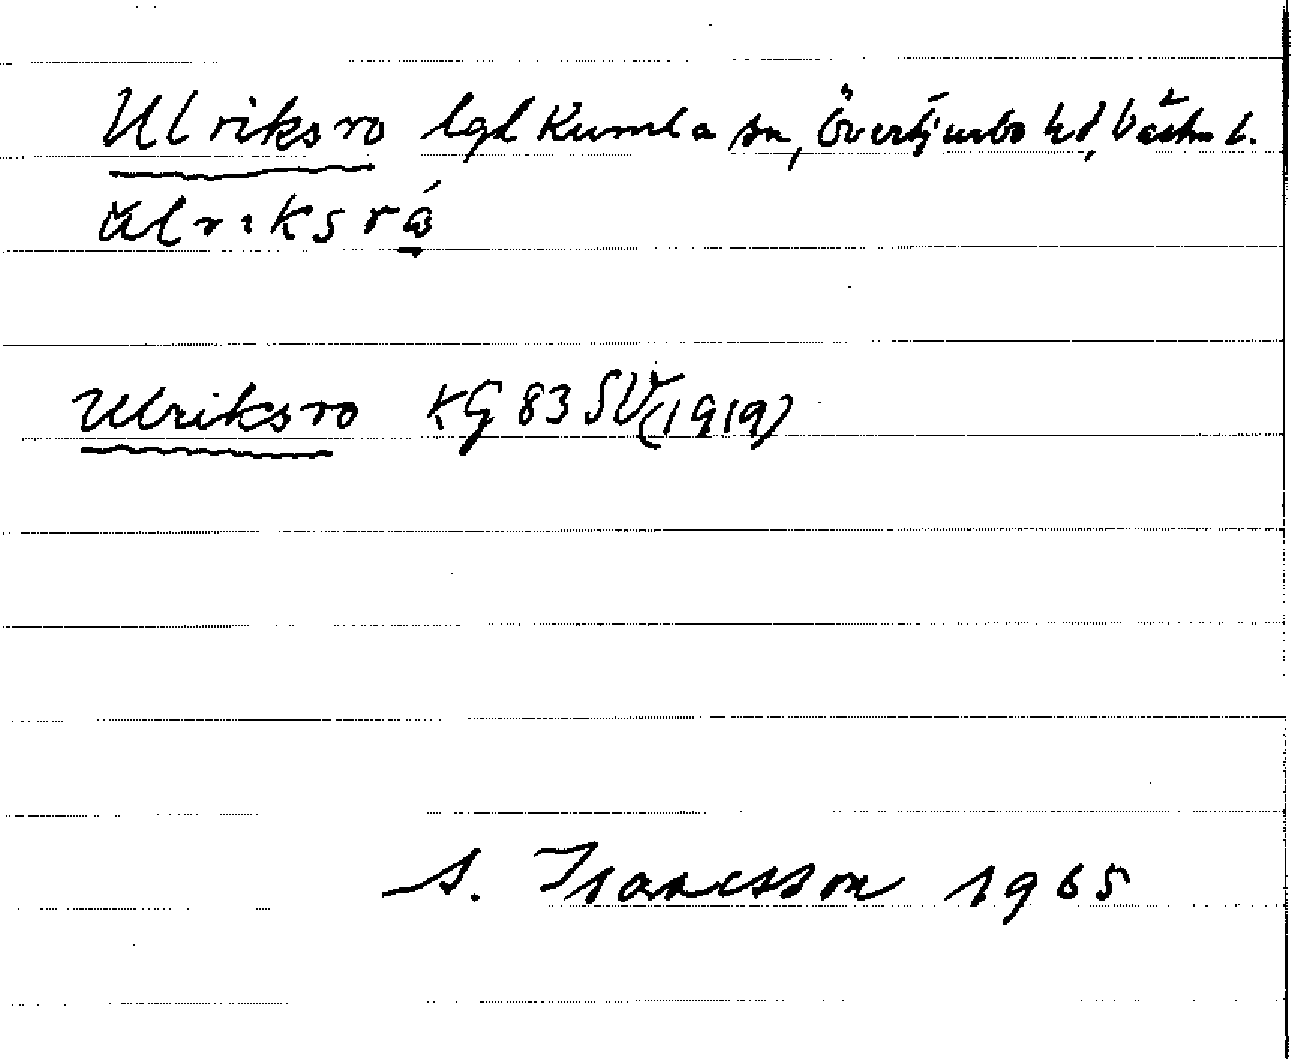 Ulriksro lgd Kumla sn, Övertjurbo hd, Västm l.
Ulriksrö
Ulriksro KG 83 SV (1919)
S. Isaacsson 1965